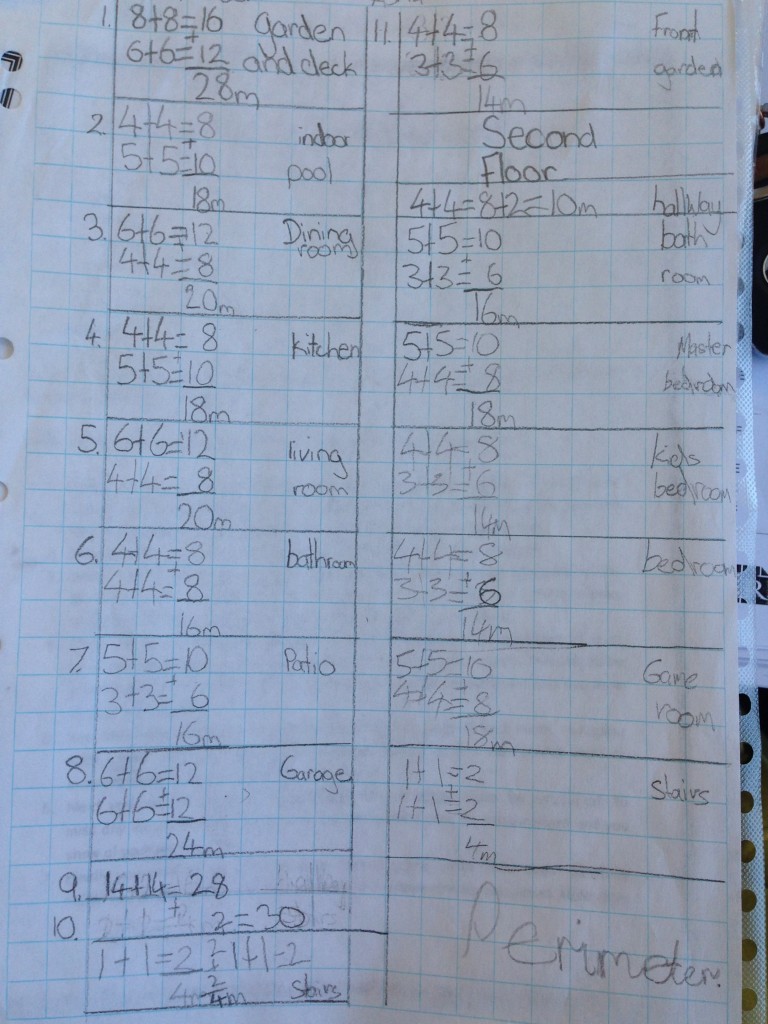 1. 8+8=16 Garden
6+6=12 and deck
+
28m
2. 4+4=8 indoor
5+5=10 pool
+
18m
3. 6+6=12 Dining
room
4+4=8
+
20m
4. 4+4=8 kitchen
5+5=10
+
18m
5. 6+6=12 living
4+4=8 room
+
20m
6. 4+4=8 bathroom
4+4=8
+
16m
7. 5+5=10 Patio
3+3=6
+
16m
8. 6+6=12 Garage
6+6=12
+
24m
9. 14+14=28
10. + 2=30
1+1=2 1+1=2
2
4m Stairs
11. 4+4=8 Front
3+3=6 garden
+
14m
Second
Floor
4+4=8+2=10m hallway
5+5=10 bath
3+3=6 room
+
16m
5+5=10 Master
4+4=8 bedroom
+
18m
4+4=8 kids
3+3=6 bedroom
+
14m
4+4=8 bedroom
3+3=6
+
14m
5+5=10 Game
4+4=8 room
+
18m
1+1=2 Stairs
1+1=2
+
4m
Perimeter.